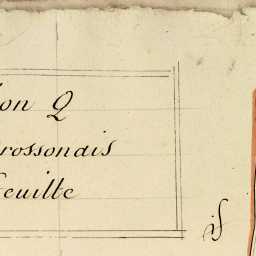 on Q
rossonais
feuille